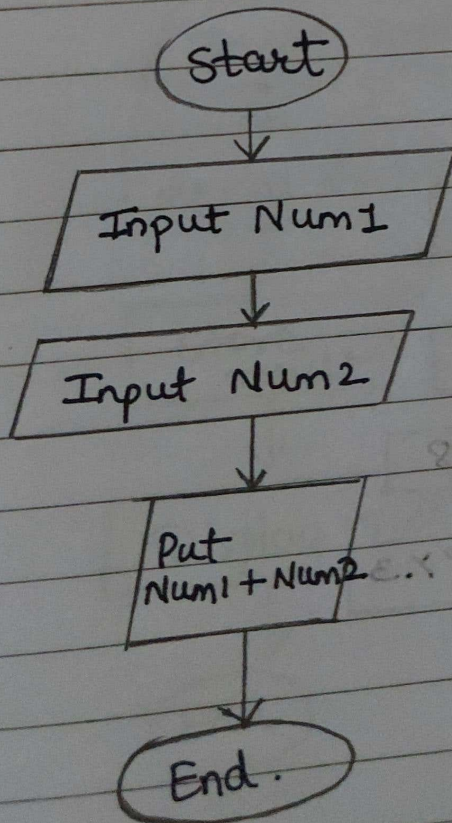 Start
Input Num1
Input Num2
Put
Num1 + Num2
End.